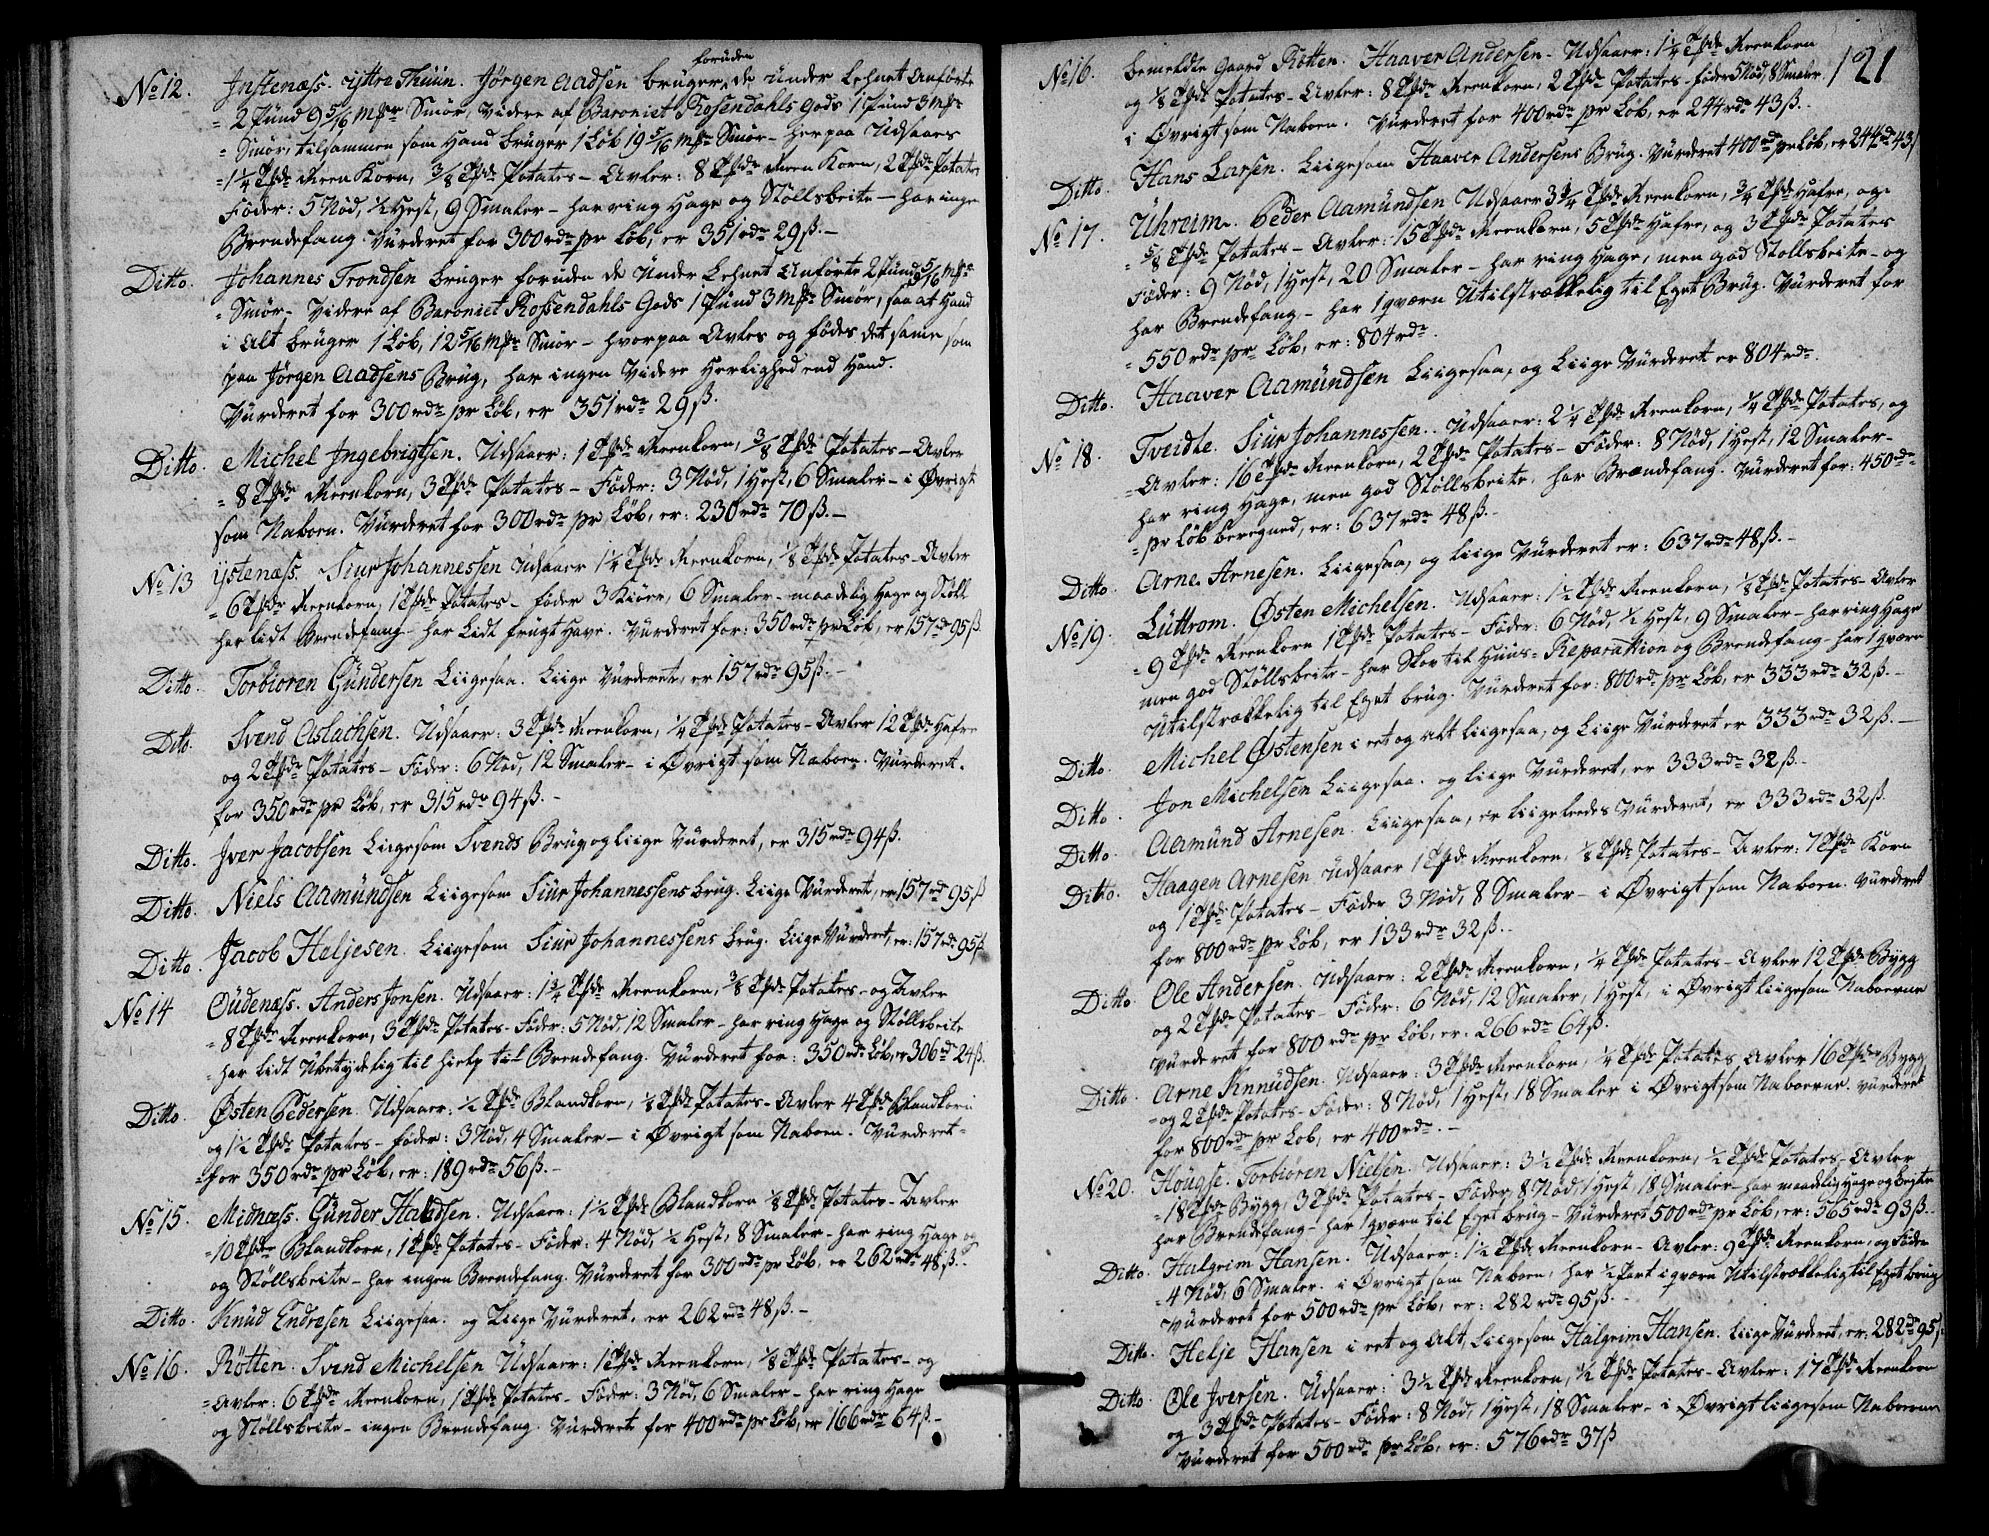 foruden
No 12. Instenæss. ÿttre Thuun. Jörgen Aadsen bruger, de under Lehnet Anförte
2 Pund 9 5/16 mkr Smör, videre af Baroniet Rosendahls Gods 1 Pund 3 mkr
Smör, tilsammen som Hand bruger 1 Löb 19 5/16 mkr Smör - herpaa Udsaaes
1 1/4 Tde Reen Korn, 3/8 Tde Potates - Avler: 8 Tde Reen Korn, 2 Tde Potates
Föder: 5 Nöd, 1/2 Hest, 9 Smaler - har ring Hage og Stöllsbeite - har ingen
Brendefang. Vurderet for 300 rdr pr Löb, er 351 rdr 29 ß. -
Ditto. Johannes Trondsen bruger foruden de Under Lehnet Anförte 2 Pund 9 5/16 mkr
Smör - Videre af Baroniet Rosendahls Gods 1 Pund 3 mkr Smör, saa at Hand
i Alt bruger 1 Löb, 12 5/16 mkr Smör - hvorpaa Avles og födes det samme som
paa Jörgen Aadsens Brug, har ingen Videre Herlighed end Hand.
Vurderet for 300 rdr pr Löb, er 351 rdr 29 ß.
Ditto. Michel Ingebrigtsen. Udsaaer: 1 Tde Reenkorn, 3/8 Tde Potates - Avler
8 Tde Reenkorn, 3 Tde Potates - Föder: 3 Nöd, 1 Hest, 6 Smaler - i Øvrigt
som Naboen. Vurderet for 300 rdr pr Löb, er: 230 rdr 70 ß. -
No 13 ÿstenæss. Siur Johannessen Udsaaer 1 1/4 Tde Reenkorn, 1/8 Tde Potates - Avler
6 Tde Reenkorn, 1 Tde Potates - föder 3 Kiöer, 6 Smaler - maadelig Hage og Stöll
har lidt Brendefang - har Lidt frugt Have. Vurderet for: 350 rdr pr Löb, er 157 rdr 95 ß
Ditto. Torbioren Gundersen Liigesaa. Liige Vurderet, er 157 rdr 95 ß. -
Ditto. Svend Aslachsen. Udsaaer: 3 Tde Reenkorn, 1/4 Tde Potates - Avler 12 Tde Hafre
og 2 Tde Potates - Föder: 6 Nöd, 12 Smaler - i Øvrigt som Naboen. Vurderet.
for 350 rdr pr Löb, er 315 rdr 94 ß. -
Ditto. Iver Jacobsen Liigesom Svends Brug og liige Vurderet, er 315 rdr 94 ß.
Ditto. Niels Aamundsen Liigesom Siur Johannessens brug. Liige Vurderet, er 157 rdr 95 ß
Ditto. Jacob Heljesen. Liigesom Siur Johannessens brug. Liige Vurderet, er: 157 rdr 95 ß.
No 14 Oudenæss. Anders Jonsen. Udsaaer: 1 3/4 Tde Reenkorn, 3/8 Tde Potates - og Avler
8 Tde Reenkorn, 3 Tde Potates - Föder: 5 Nöd, 12 Smaler - har ring Hage og Stöllsbeite
har lidt Ubetydelig til hielp til Brendefang. Vurderet for: 350 rdr Löb, er 306 rdr 24 ß.
Ditto. Östen Pedersen. Udsaaer: 1/2 Tde Blandkorn, 1/8 Tde Potates - Avler 4 Tde Blandkorn
og 1 1/2 Tde Potates - föder: 3 Nöd, 4 Smaler - i Øvrigt som Naboen. Vurderet
for 350 rdr pr Löb, er: 189 rdr 56 ß. -
No 15. Midnæss. Gunder Haldsen. Udsaaer: 1 1/2 Tde Blandkorn 1/8 Tde Potates - Avler
10 Tde Blandkorn, 1 Tde Potates - Föder: 4 Nöd, 1/2 Hest, 8 Smaler - har ring Hage og
og Stöllsbeite - har ingen Brendefang. Vurderet for 300 rdr pr Löb, er 262 rdr 48 ß. -
Ditto. Knud Endresen Liigesaa. og Liige Vurderet, er 262 rdr 48 ß. -
No 16. Rötten. Svend Michelsen Udsaaer: 1 Tde Reenkorn, 1/8 Tde Potates - og
Avler: 6 Tde Reenkorn, 1 Tde Potates - Föder: 3 Nöd, 6 Smaler - har ring Hage
og Stöllsbeite - ingen Brendefang. Vurderet for 400 rdr pr Löb, er 166 rdr 64 ß. -
121
No 16. bemeldte Gaard Rötten. Haaver Andersen - Udsaaer: 1 1/4 Tde Reenkorn
og 1/8 Tde Potates - Avler: 8 Tde Reenkorn, 2 Tde Potates - föder 5 Nöd, 8 Smaler.
i Øvrigt som Naboen. Vurderet for 400 rdr pr Löb, er 244 rdr 43 ß. -
Ditto. Hans Larsen. Liigesom Haaver Andersens Brug. Vurderet 400 rdr pr Löb, er 244 rdr 43 ß
No 17. Uhreim. Peder Aamundsen Udsaaer 3 3/4 Tde Reenkorn, 3/4 Tde Hafre, og
5/8 Tde Potates - Avler: 15 Tde Reenkorn, 5 Tde Hafre, og 3 Tde Potates
Föder: 9 Nöd, 1 Hest, 20 Smaler - har ring Hage, men god Stöllsbeite - og
har Brendefang - har 1 qværn Utilstrækkelig til Eget Brug. Vurderet for
550 rdr pr Löb, er: 804 rdr.
Ditto. Haaver Aamundsen Liigesaa, og Liige Vurderet er 804 rdr.
No 18. Tveidte. Siur Johannessen. Udsaaer: 2 1/4 Tde Reenkorn, 1/4 Tde Potates, og
Avler: 16 Tde Reenkorn, 2 Tde Potates - Föder: 8 Nöd, 1 Hest, 12 Smaler -
har ring Hage, men god Stöllsbeite, har Brændefang. Vurderet for: 450 rdr
pr Löb beregned, er: 637 rdr 48 ß. -
Ditto. Arne Arnesen. Liigesaa, og liige Vurderet er: 637 rdr 48 ß. -
No 19. Luttrom. Östen Michelsen. Udsaaer: 1 1/2 Tde Reenkorn, 1/8 Tde Potates - Avler
9 Tde Reenkorn 1 Tde Potates - Föder: 6 Nöd, 1/2 Hest, 9 Smaler - har ring Hage
men god Stöllsbeite - har Skov til Huus-Reparattion og Brendefang - har 1 qværn
Utilstrækkelig til Eget brug. Vurderet for: 800 rdr pr Löb, er 333 rdr 32 ß. -
Ditto. Michel Östensen i eet og alt liigesaa, og Liige Vurderet er 333 rdr 32 ß. -
Ditto. Jon Michelsen Liigesaa. og liige Vurderet, er 333 rdr 32 ß. -
Ditto. Aamund Arnesen. Liigesaa, er liigeledes Vurderet, er 333 rdr 32 ß.
Ditto. Haagen Arnesen Udsaaer 1 Tde Reenkorn, 1/8 Tde Potates - Avler: 7 Tde Korn
og 1 Tde Potates - Föder 3 Nöd, 8 Smaler - i Øvrigt som Naboen. Vurderet
for 800 rdr pr Löb, er 133 rdr 32 ß. -
Ditto. Ole Andersen. Udsaaer: 2 Tde Reenkorn, 1/4 Tde Potates - Avler 12 Tde Bÿgg
og 2 Tde Potates - Föder: 6 Nöd, 12 Smaler, 1 Hest, i Øvrigt liigesom Naboerne
Vurderet for 800 rdr pr Löb, er: 266 rdr 64 ß.
Ditto. Arne Knnudsen. Udsaaer: 3 Tde Reenkorn, 1/4 Tde Potates, Avler 16 Tde Bÿgg
og 2 Tde Potates - Föder: 8 Nöd, 1 Hest, 18 Smaler i Øvrigt som Naboerne. Vurderet
for 800 rdr pr Löb, er 400 rdr. -
No 20. Höugse. Torbiören Nielsen. Udsaaer: 3 1/2 Tde Reenkorn, 1/2 Tde Potates - Avler
18 Tde Bÿgg, 3 Tde Potates - Föder, 8 Nöd, 1 Hest, 18 Smaler - har maadelig Hage og beite
har Brendefang - har 1 qværn til Eget brug - Vurderet 500 rdr pr Löb, er: 565 rdr 93 ß. -
Ditto. Halgrim Hansen. Udsaaer: 1 1/2 Tde Reenkorn - Avler: 9 Tde Reenkorn, og Föder
4 Nöd, 6 Smaler. i Øvrigt som Naboen, har 1/2 Part i qværn Utilstrækkelig til Eget brug
Vurderet for 500 rdr pr Löb, er: 282 rdr 95 ß. -
Ditto. Helje Hansen i eet og Alt, Liigesom Halgrim Hansen. Liige Vurderet, er, 282 rdr 95 ß.
Ditto. Ole Iversen. Udsaaer: 3 1/2 Tde Reenkorn, 1/2 Tde Potates - Avler: 17 Tde Reenkorn
og 3 Tde Potates - Föder: 8 Nöd, 1 Hest, 18 Smaler - i Øvrigt liigesom Naboerne
Vurderet for 500 rdr pr Löb, er: 576 rdr 37 ß